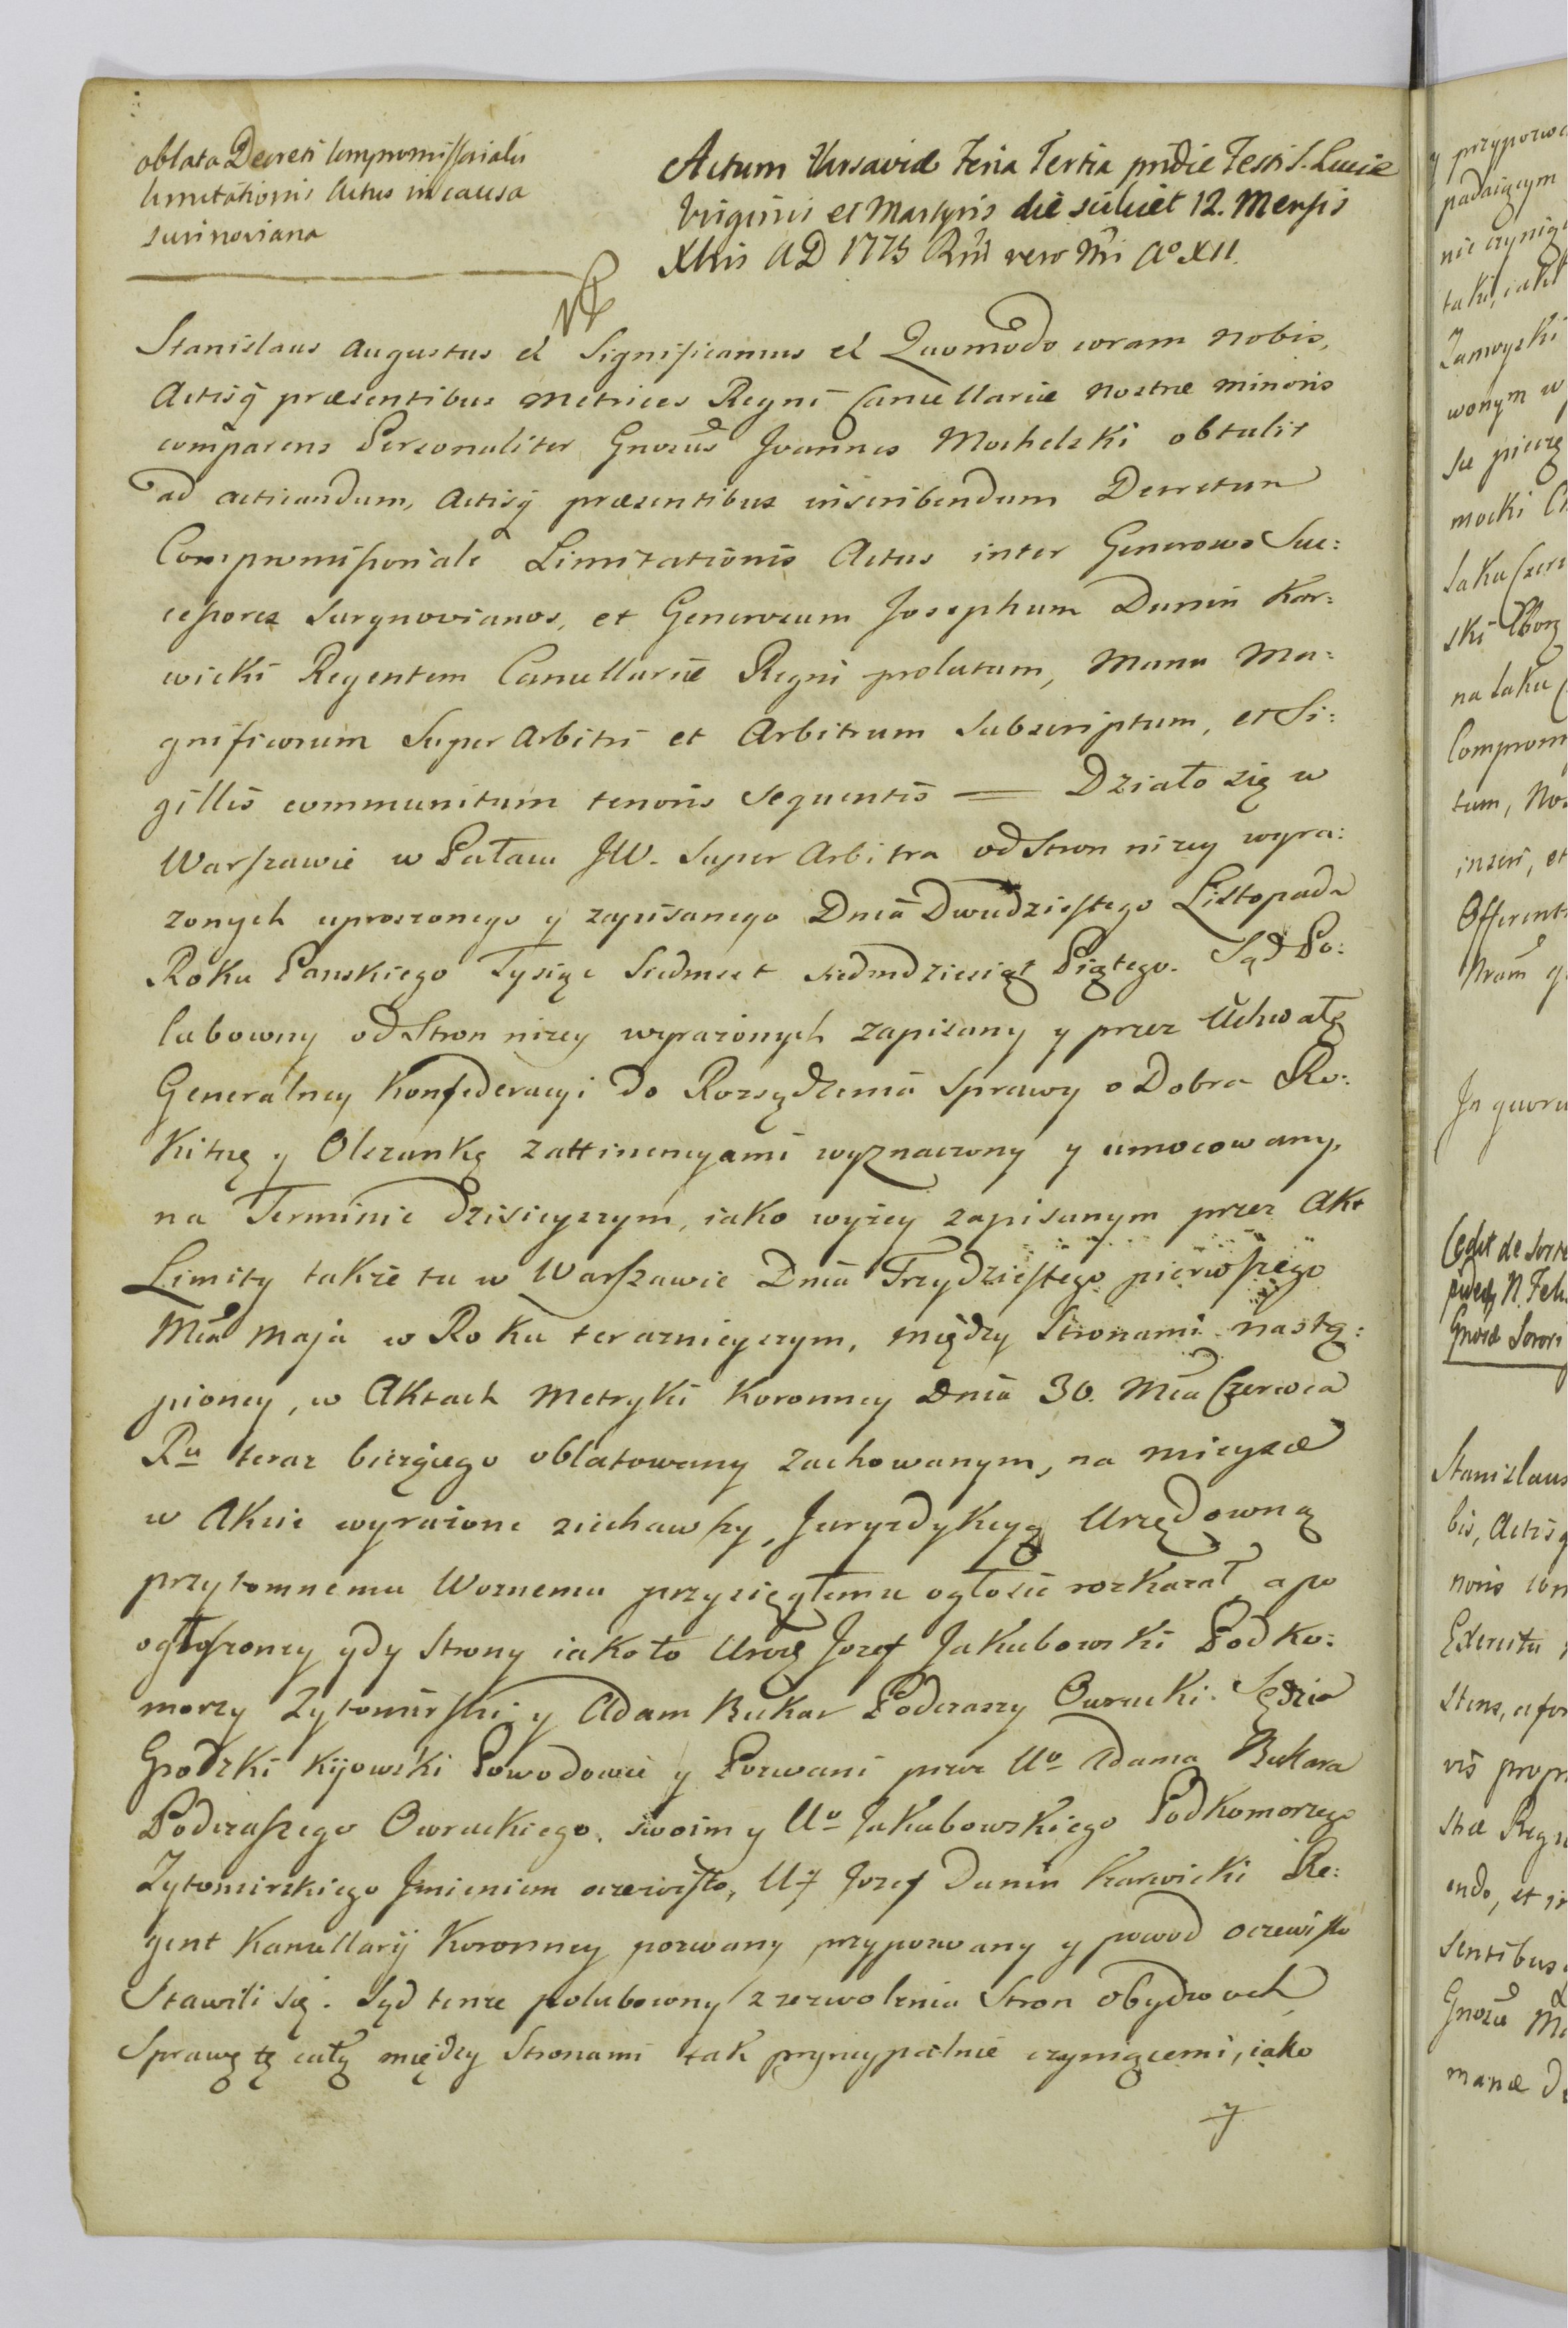 oblata Decreti Compromissorialis
limitationis Actus in causa
surinoviana
Actum Varsaviæ Feria Tertia pridie Festi S. Luciæ
Virginis et Martyris die scilicet 12. Mensis
Xbris AD 1775 Rni vero Nri Ao XII.
Stanislaus Augustus et Significamus et Quomodo coram nobis,
Actisq præsentibus Metrices Regni Cancellariæ Nostræ minoris
comparens Personaliter Gnosus Joannes Mochelski obtulit
ad acticandum, Actisq præsentibus inscribendum Decretum
Compromissoriale Limitationis Actus inter Generosos Suc:
cessores Surynovianos, et Generosum Josephum Dunin Kar:
wicki Regentem Cancellariæ Regni prolatum, Manu Ma:
gnificorum Super Arbitri et Arbitrum Subscriptum, et Si:
gillis communitum tenoris sequentis — Działo się w
Warszawie w Pałacu JW. Super Arbitra od Stron nizey wyra:
zonych uproszonego y zapisanego Dnia Dwudziestego Listopada
Roku Panskiego Tysiąc Siedmset siedmdziesiąt Piątego. Sąd Po:
lubowny od Stron nizey wyrazonych zapisany y przez Uchwałę
Generalney Konfederacyi do Rozsądzenia Sprawy o Dobra Ro:
kitnę y Olszankę z attinencyami wyznaczony y umocowany,
na Terminie dzisieyszym, iako wyżey zapisanym przez Akt
Limity takze tu w Warszawie Dnia Trzydziestego pierwszego
Mca Maja w Roku teraznieyszym, między Stronami nastę:
pioney, w Aktach Metryki Koronney Dnia 30. Mca Czerwca
Ru teraz bieżącego oblatowany zachowanym, na mieysce
w Akcie wyrażone ziechawszy, Juryzdykcyą Urzędowną
przytomnemu Woznemu przysięgłemu ogłosić rozkazał, a po
ogłoszoney gdy Strony iako to Urodź Jozef Jakubowski Podko:
morzy Zytomirski y Adam Bukar Podczaszy Owrucki Sędzia
Grodzki Kijowski Powodowie y Pozwani przez Uo Adama Bukara
Podczaszego Owruckiego, swoim y Uo Jakubowskiego Podkomorzego
Zytomirskiego Jmieniem oczewisto, Ur Jozef Dunin Karwicki Re:
gent Kancellarij Koronney pozwany przypozwany y powod oczewisto
Stawili się. Sąd tenze polubowny z zezwolenia Stron obydwoch
Sprawę tę całą między Stronami tak pryncypalnie czyniącemi, iako
y